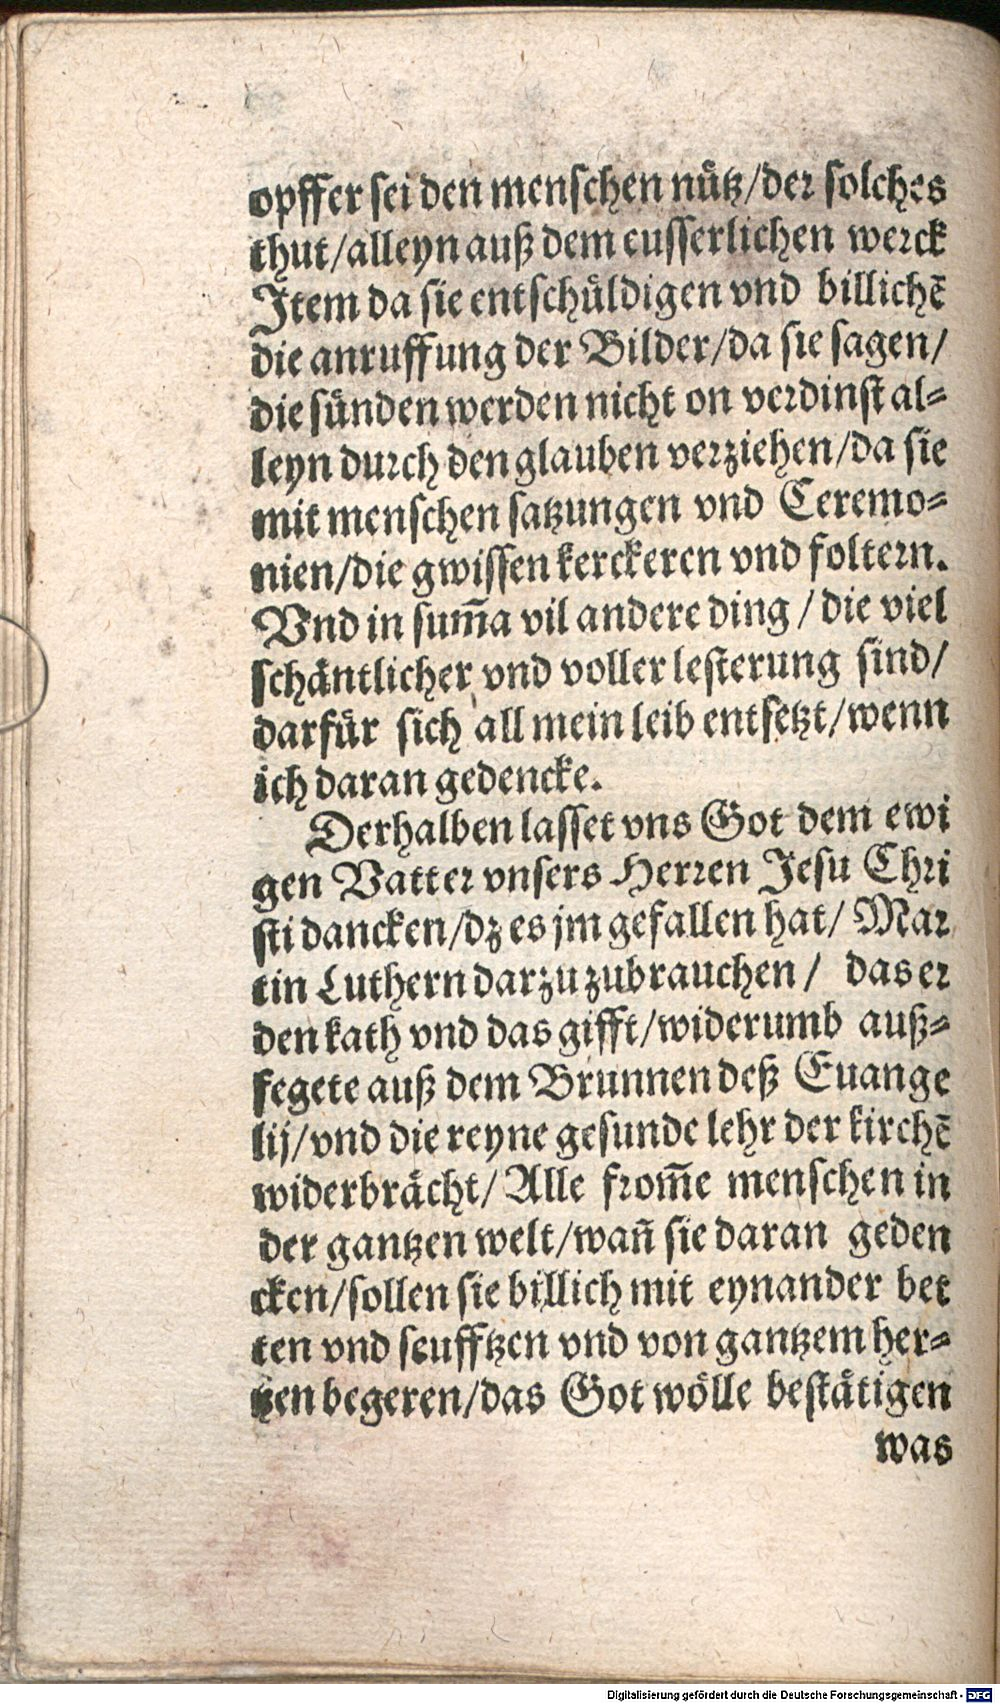 opffer sei den menschen nuͤtz/der solches
thut/alleyn auß dem eusserlichen werck
Item da sie entschuͤldigen vnd billichẽ
die anruffung der Bilder/da sie sagen/
die suͤnden werden nicht on verdinst al-
leyn durch den glauben verziehen/da sie
mit menschen satzungen vnd Ceremo-
nien/die gwissen kerckeren vnd foltern.
Vnd in sum̃a vil andere ding / die viel
schaͤntlicher vnd voller lesterung sind/
darfuͤr sich all mein leib entsetzt/wenn
ich daran gedencke.
Derhalben lasset vns Got dem ewi
gen Vatter vnsers Herren Jesu Chri
sti dancken/dz es jm gefallen hat/ Mar
tin Luthern darzu zubrauchen / das er
den kath vnd das gifft/widerumb auß-
fegete auß dem Brunnen deß Euange
lij/vnd die reyne gesunde lehr der kirchẽ
widerbraͤcht/ Alle from̃e menschen in
der gantzen welt/wañ sie daran geden
cken/sollen sie billich mit eynander bet
ten vnd seufftzen vnd von gantzem her-
tzen begeren/das Got woͤlle bestaͤtigen
was
Digitalisierung gefördert durch die Deutsche Forschungsgemeinschaft - DFG